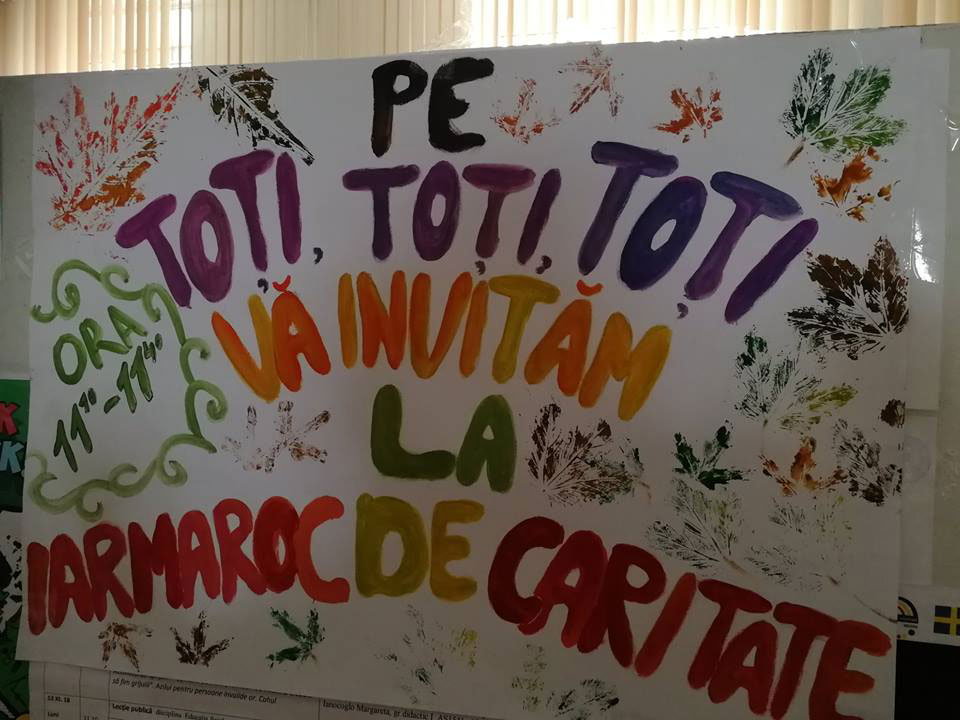 PE
TOȚI, TOȚI, TOȚI
VĂ INVITĂM
LA
IARMAROC DE CARITATE
ORA
11¹⁰-11⁴⁰
să fim grijulii". Azilul pentru persoane invalide or. Cahul
12 XI. 18
Luni
Lecție publică
Ianocoglo Margareta, gr.didactic I